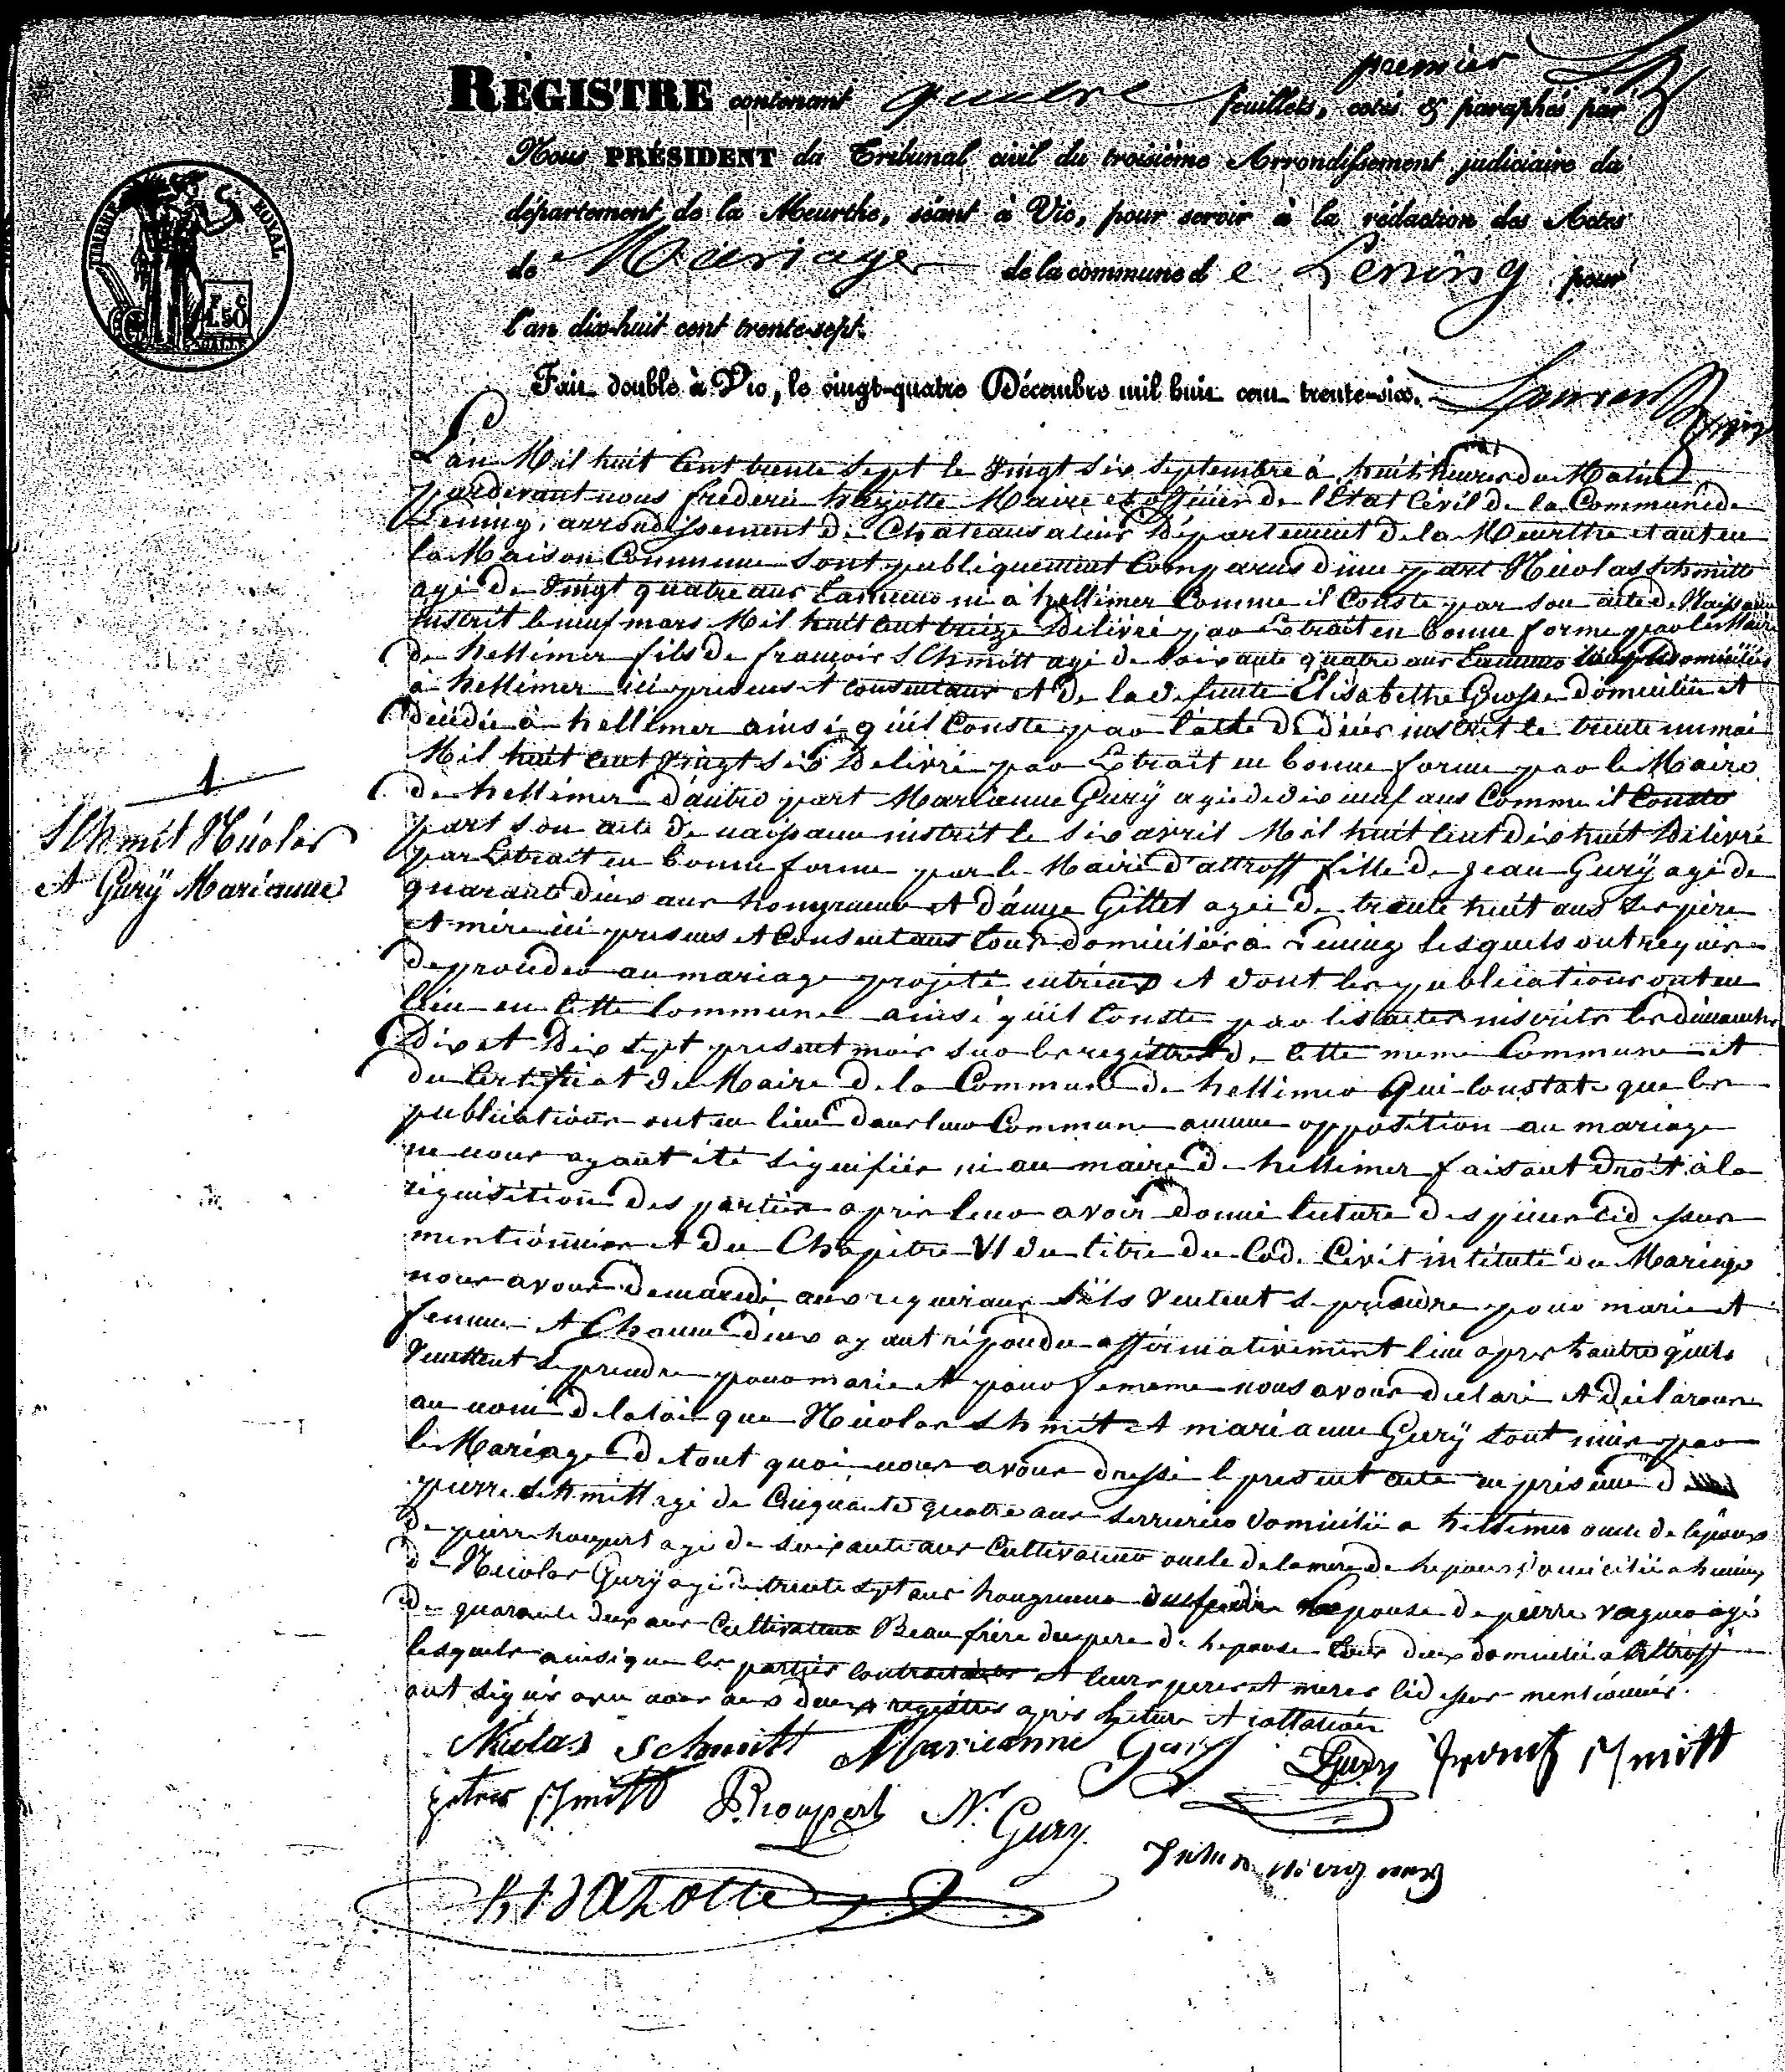 premier
REGISTRE contenant quatre feuillets, cotés & paraphés par
Nous PRÉSIDENT du Tribunal civil du troisième Arrondissement judiciaire du
département de la Meurthe, séant à Vic, pour servir à la rédaction des Actes
de Mariage de la commune de Lening pour
l'an dix-huit cent trente-sept.
Fait double à Vic, le vingt-quatre Décembre mil huit cent trente-six.
TIMBRE ROYAL
L'an Mil huit Cent trente sept le vingt six septembre à huit heures du Matin
pardevant nous frederic hazotte Maire et officier de l'Etat Civil de la Commune de
Lening, arrondissement de Chateausalins Département de la Meurthe etant en
la Maison Commune sont publiquement Comparus d'une part Nicolas Schmitt
agé de Vingt quatre ans né à hellimer Comme il Conste par son acte de Naissance
inscrit le neuf mars Mil huit Cent treize Delivré par Extrait en bonne forme par le Maire
de hellimer fils de françois SChmitt agé de Soixante quatre ans domicilié
à hellimer ici present et consentant et de la defunte Elisabethe Grosse domiciliée et
décédée à hellimer ainsi qu'il Conste par l'acte de décès inscrit le trente un mai
Mil huit Cent Vingt six Delivré par Extrait en bonne forme par le Maire
de hellimer d'autre part Marianne Gurÿ agée de dix neuf ans Comme il Conste
part son acte de naissance inscrit le six avril Mil huit Cent dix huit Delivré
par Extrait en bonne forme par le Maire d'altroff fille de Jean Gurÿ agé de
quarante deux ans hongreur et d'anne Gillet agée de trente huit ans ses père
et mère ici presens et Consentans tous domiciliés à Lening lesquels ont requis
de proceder au mariage projeté entr'eux et dont les publications ont eu
lieu en Cette Commune ainsi qu'il Conste par les actes inscrits les dimanches
Dix et Dix sept present mois sur les registres de Cette meme Commune et
du Certificat du Maire de la Commune de hellimer Qui Constate que les
publications ont eu lieu dans leur Commune aucune opposition au mariage
ne nous ayant été signifiée ni au maire de hellimer faisant Droit à la
requisition des parties apres leur avoir Donné lecture des pieces cidessus
mentionnées et du Chapitre VI du titre du Code Civil intitulé du Mariage
nous avons demandé aux requerans s'ils veulent se prendre pour mari et
femme et Chacun d'eux ayant répondu affirmativement l'un apres l'autre qu'ils
veuillent se prendre pour mari et pour femme nous avons declaré et déclarons
au nom de la loi que Nicolas Schmit et marianne Gurÿ sont unis par
le Mariage de tout quoi nous avons dressé le present acte en présence de
pierre Schmitt agé de Cinquante quatre ans Serrurier domicilié a hellimer oncle de l'epoux
de pierre houpert agé de soixante ans Cultivateur oncle de la mere de
de Nicolas Gurÿ agé de trente sept ans hongreur l'epouse de pierre agé
de quarante deux ans Cultivateur Beau frère du pere de l'epouse tous deux domiciliés a Altroff
lesquels ainsi que les parties contractantes et leurs peres et meres cidessus mentionnés
ont signés avec nous aux deux registres apres lecture et collation
1
SChmit Nicolas
et Gurÿ Marianne
Nicolas Schmitt Marianne Gury JGury Frantz Schmitt
Peter Schmitt P. houpert N. Gury
hazotte